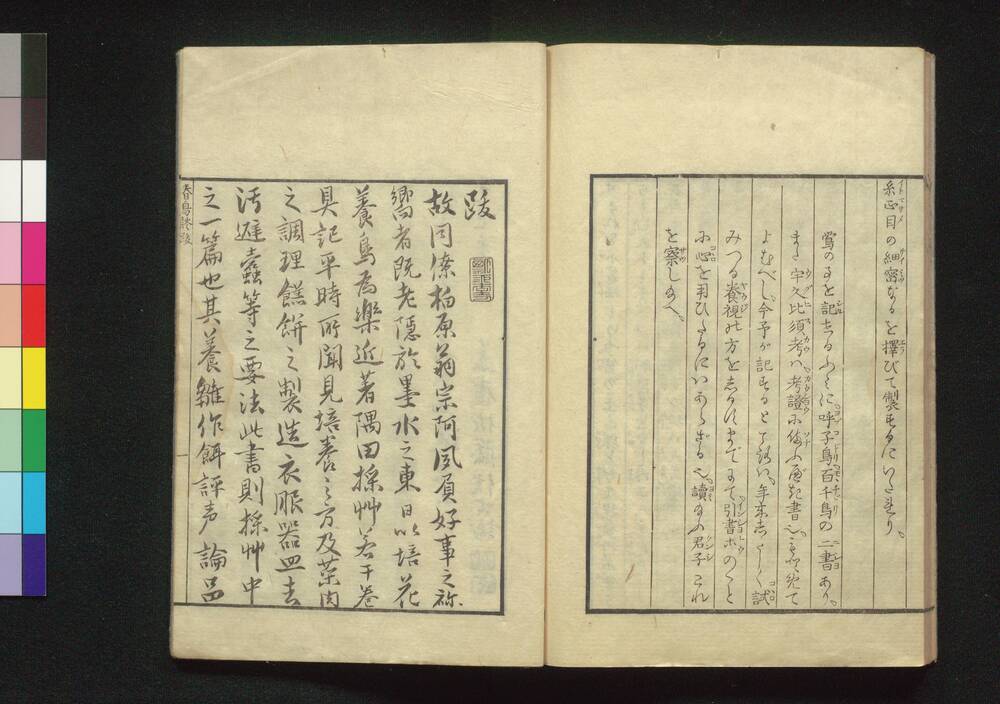 糸正目の細密なるを擇びて製するにいたれり。
鶯の事を記せるふみに呼子鳥百千鳥の二書あり。
また宇久比須考ハ考證に備ふべき書也。
よむべし。今予が記するところハ。年来したしく試
みつる養視の方を志るすまでにて引書等のこと
に心を用ひたるにハあらざる也。讀給ふ君子これ
を察し給へ。
跋
故同僚栢原翁宗阿夙負好事之称
嚮者既老隠於墨水之東日以培花
養鳥為樂近著隅田採艸若干巻
具記平時所聞見培養之方及菜肉
之調理饀餅之製造衣服器皿去
汚避蠧等之要法此書則採艸中
之一篇也其養雛作餌評声論品
春鳥談跋
一